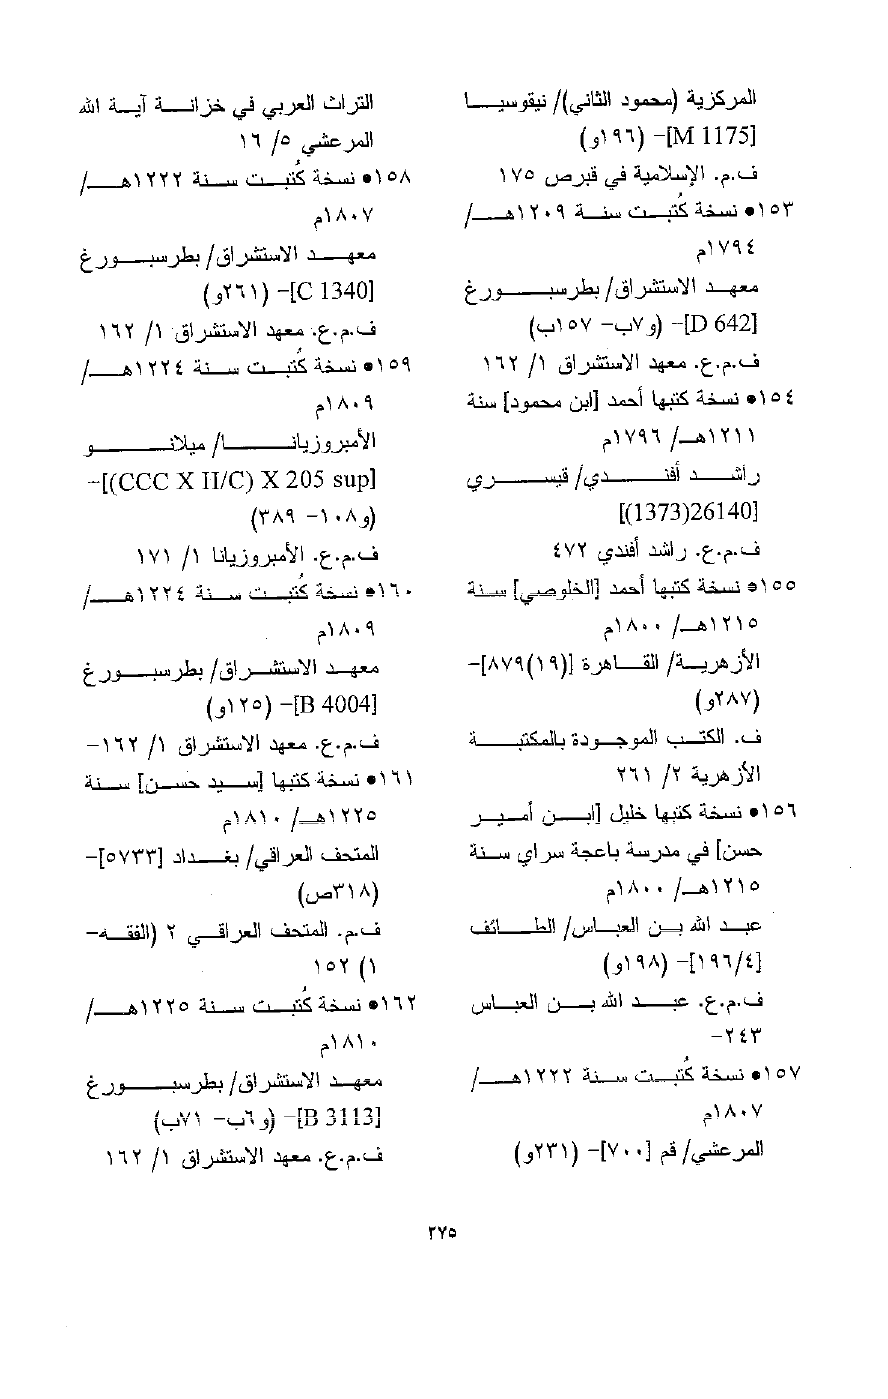 المركزية (محمود الثاني)/ نيقوسيـــا
[M 1175]- (١٩٦و)
ف.م. الإسلامية في قبرص ١٧٥
١٥٣• نسخة كُتبـت سنـة ١٢٠٩هــ/
١٧٩٤م
معهـد الاستشراق/ بطرسبـــورغ
[D 642]- (و٧ب- ١٥٧ب)
ف.م.ع. معهد الاستشراق ١/ ١٦٢
١٥٤• نسخة كتبها أحمد [ابن محمود] سنة
١٢١١هـ/ ١٧٩٦م
راشـد أفنــدي/ قيســري
[26140(1373)]
ف.م.ع. راشد أفندي ٤٧٢
١٥٥• نسخة كتبها أحمد [الخلوصي] سـنة
١٢١٥هـ/ ١٨٠٠م
الأزهريـة/ القـاهرة [(١٩)٨٧٩]-
(٢٨٧و)
ف. الكتـب الموجـودة بالمكتبـــة
الأزهرية ٢/ ٢٦١
١٥٦• نسخة كتبها خليل [ابــن أميـر
حسن] في مدرسة باعجة سراي سـنة
١٢١٥هـ/ ١٨٠٠م
عبـد الله بـن العبـاس/ الطـائف
[١٩٦/٤]- (١٩٨و)
ف.م.ع. عبــد الله بــن العبـاس
٢٤٣-
١٥٧• نسخة كُتبـت سـنة ١٢٢٢هــ/
١٨٠٧م
المرعشي/ قم [٧٠٠]- (٢٣١و)
التراث العربي في خزانــة آيـة الله
المرعشي ٥/ ١٦
١٥٨• نسخة كُتبـت سـنة ١٢٢٢هــ/
١٨٠٧م
معهـد الاستشراق/ بطرسبــورغ
[C 1340]- (٢٦١و)
ف.م.ع. معهد الاستشراق ١/ ١٦٢
١٥٩• نسخة كُتبـت سـنة ١٢٢٤هــ/
١٨٠٩م
الأمبروزيانـــا/ ميلانـــو
[(CCC X II/C) X 205 sup]-
(و١٠٨- ٣٨٩)
ف.م.ع. الأمبروزيانا ١/ ١٧١
١٦٠• نسخة كُتبـت سـنة ١٢٢٤هــ/
١٨٠٩م
معهـد الاستشـراق/ بطرسبـورغ
[B 4004]- (١٢٥و)
ف.م.ع. معهد الاستشراق ١/ ١٦٢-
١٦١• نسخة كتبها [سـيد حسـن] سـنة
١٢٢٥هـ/ ١٨١٠م
المتحف العراقي/ بغـداد [٥٧٣٣]-
(٣١٨ص)
ف.م. المتحف العراقـي ٢ (الفقـه-
١) ١٥٢
١٦٢• نسخة كُتبـت سـنة ١٢٢٥هــ/
١٨١٠م
معهـد الاستشراق/ بطرسبــورغ
[B 3113]- (و٦ب- ٧١ب)
ف.م.ع. معهد الاستشراق ١/ ١٦٢
٢٧٥